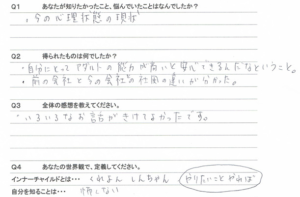 Q1 あなたが知りたかったこと、悩んでいたことはなんでしたか?
・今の心理状態の現状
Q2 得られたものは何でしたか?
・自分にとってアダルトの能力が高いと安心できるんだなということ。
・前の会社と今の会社の社風の違いが分かった。
Q3 全体の感想を教えてください。
いろいろなお話がきけてよかったです。
Q4 あなたの世界観で、定義してください。
インナーチャイルドとは・・・ くれよんしんちゃん やりたいことやれば
自分を知ることは・・・